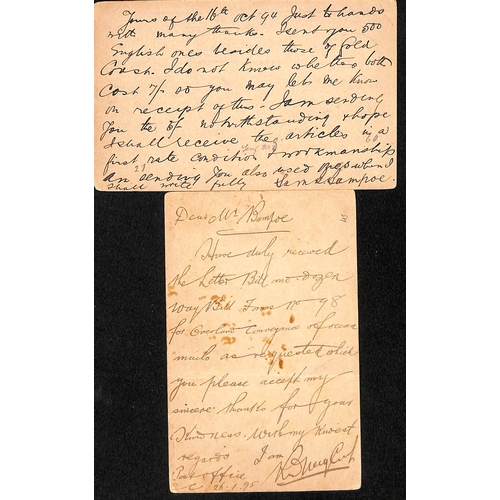 Yours of the 16th Oct 94 Just to hands
with many thanks. I sent you 500
English ones besides those of Gold
Coast. I do not know whether both
Cost 7/- so you may let me know
on receipt of this. I am sending
you the notwithstanding & hope
I shall receive the articles in a
first rate condition & workmanship
am sending you also used ones when I
shall write fully Sam
Dear Mr Bampoe
Have duly received
the Letter Bill one dozen
Way Bill Forms No 98
for Overland Conveyance of
much as requested which
you please accept my
sincere thanks for your
Kindness. With my
regards I am
Post Office
26.1.95